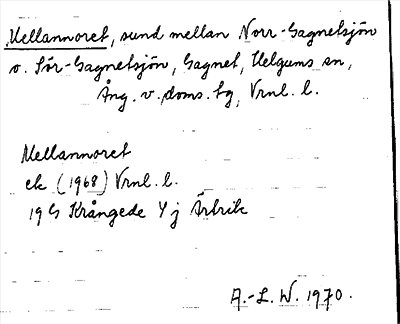 Mellannoret, sund mellan Norr-Gagnetsjön
o. Sör-Gagnetsjön, Gagnet, Helgums sn,
Ång. v. doms. tg, Vrnl. l.
Mellannoret
ek (1968) Vrnl. l.
19 G Krångede Y j Ärtrik
A.-L. W. 1970.